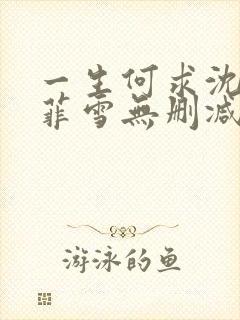 一生何求沈
菲雪無删减
游泳的鱼